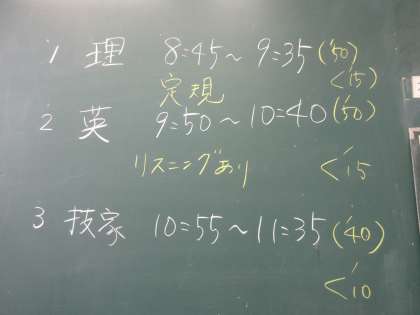 1 理 8:45～9:35(50)
定規 <15
2 英 9:50～10:40(50)
リスニングあり <15
3 技家 10:55～11:35(40)
<10